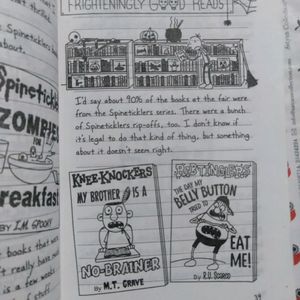 that thrilled
about.
Spinetickle
ZOMBIE
FOR
reakfast
BY I.M. SPOOKY
books that
't really have
is a few weeks
FRIGHTENINGLY GOOD READS
I'd say about 90% of the books at the fair
were from the Spineticklers series. There were
a bunch
of Spineticklers rip-offs, too. I don't know if
it's legal to do that kind of thing, but something
about it doesn't seem right.
KNEE-KNOCKERS
MY BROTHER IS A
NO-BRAINER
BY M.T. GRAVE
THE DAY MY
BELLY BUTTON
TRIED TO
EAT
ME!
By R.U. SCARED